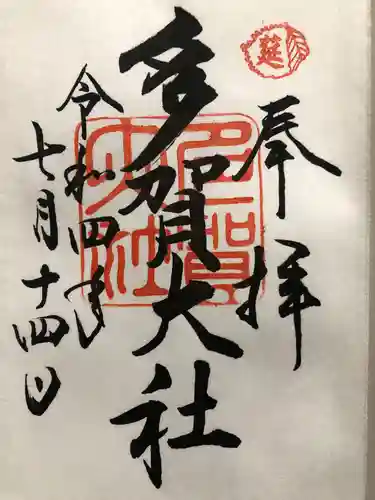 奉拝
延
多賀大社
多賀大社
令和四年
七月十四日